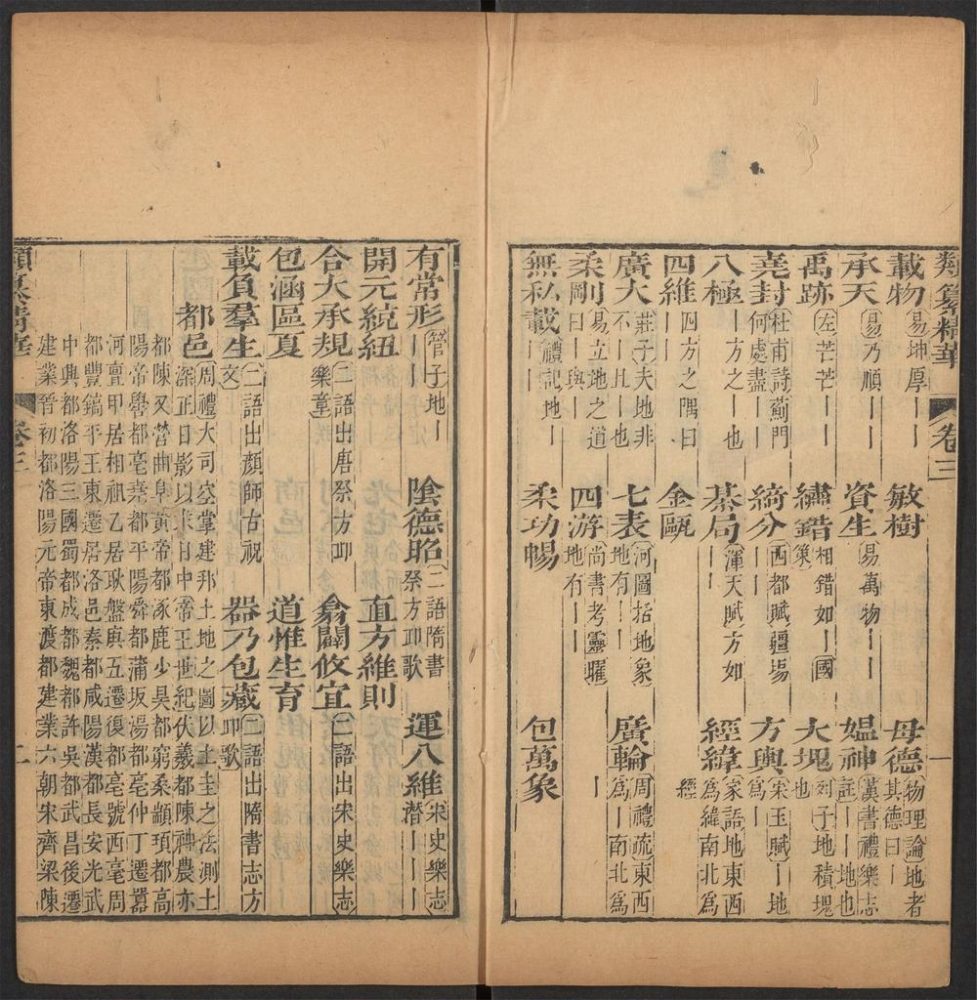 類纂精華 卷三
載物 易坤厚—— 敏樹 母德 物理論地者其德曰——
承天 易乃順—— 資生 易萬物—— 媪神 漢書禮樂志註——地也
禹跡 左芒芒—— 繡錯 相錯如——國策 大塊 列子地積塊也
堯封 杜甫詩薊門何處盡—— 綺分 西都賦疆埸—— 方輿 宋玉賦——地爲
八極 —方之—也 棊局 渾天賦方如—— 經緯 家語地東西爲緯南北爲經
四維 四方之隅曰—— 金甌
廣大 莊子夫地非不—且—也 七表 河圖括地象地有—— 廣輪 周禮疏東西爲—南北爲—
柔剛 易立地之道曰—與— 四游 尚書考靈曜地有——
無私載 禮記地——— 柔功暢 包萬象
有常形 管子地——— 陰德昭 二語隋書祭方丘歌 運八維 宋史樂志潛———
開元統紐 直方維則
合大承規 二語出唐祭方丘樂章 翕闢攸宜 二語出宋史樂志
包涵區夏 道惟生育
載負羣生 二語出顏師古祝文 器乃包藏 二語出隋書志方丘歌
都邑 周禮大司空掌建邦土地之圖以土圭之法測土深正日影以求日中 帝王世紀伏羲都陳神農亦
都陳又營曲阜黃帝都涿鹿少昊都窮桑顓頊都高
陽帝嚳都亳堯都平陽舜都蒲坂湯都亳仲丁遷囂
河亶甲居相祖乙居耿盤庚五遷復都亳號西亳周
都豐鎬平王東遷居洛邑秦都咸陽漢都長安光武
中興都洛陽三國蜀都成都魏都許吳都武昌後遷
建業晉初都洛陽元帝東渡都建業六朝宋齊梁陳
類纂精華 卷三 二